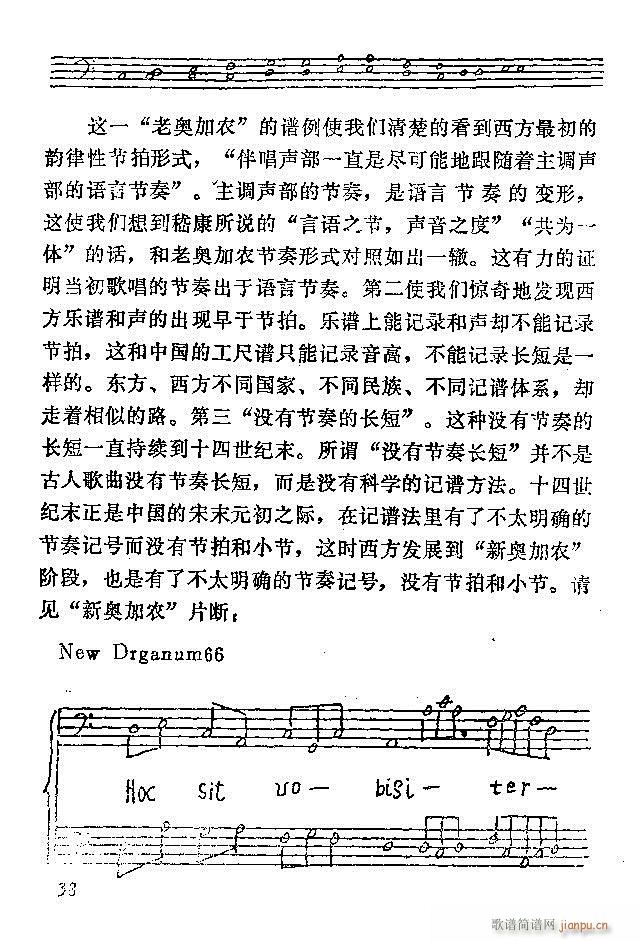 这一“老奥加农”的谱例使我们清楚的看到西方最初的
韵律性节拍形式，“伴唱声部一直是尽可能地跟随着主调声
部的语言节奏”。主调声部的节奏，是语言节奏的变形，
这使我们想到嵇康所说的“言语之节，声音之度”“共为一
体”的话，和老奥加农节奏形式对照如出一辙。这有力的证
明当初歌唱的节奏出于语言节奏。第二使我们惊奇地发现西
方乐谱和声的出现早于节拍。乐谱上能记录和声却不能记录
节拍，这和中国的工尺谱只能记录音高，不能记录长短是一
样的。东方、西方不同国家、不同民族、不同记谱体系，却
走着相似的路。第三“没有节奏的长短”。这种没有节奏的
长短一直持续到十四世纪末。所谓“没有节奏长短”并不是
古人歌曲没有节奏长短，而是没有科学的记谱方法。十四世
纪末正是中国的宋末元初之际，在记谱法里有了不太明确的
节奏记号而没有节拍和小节，这时西方发展到“新奥加农”
阶段，也是有了不太明确的节奏记号，没有节拍和小节。请
见“新奥加农”片断：
New Drganum66
Hoc sit vo— bisi— ter—
38
歌谱简谱网 jianpu.cn